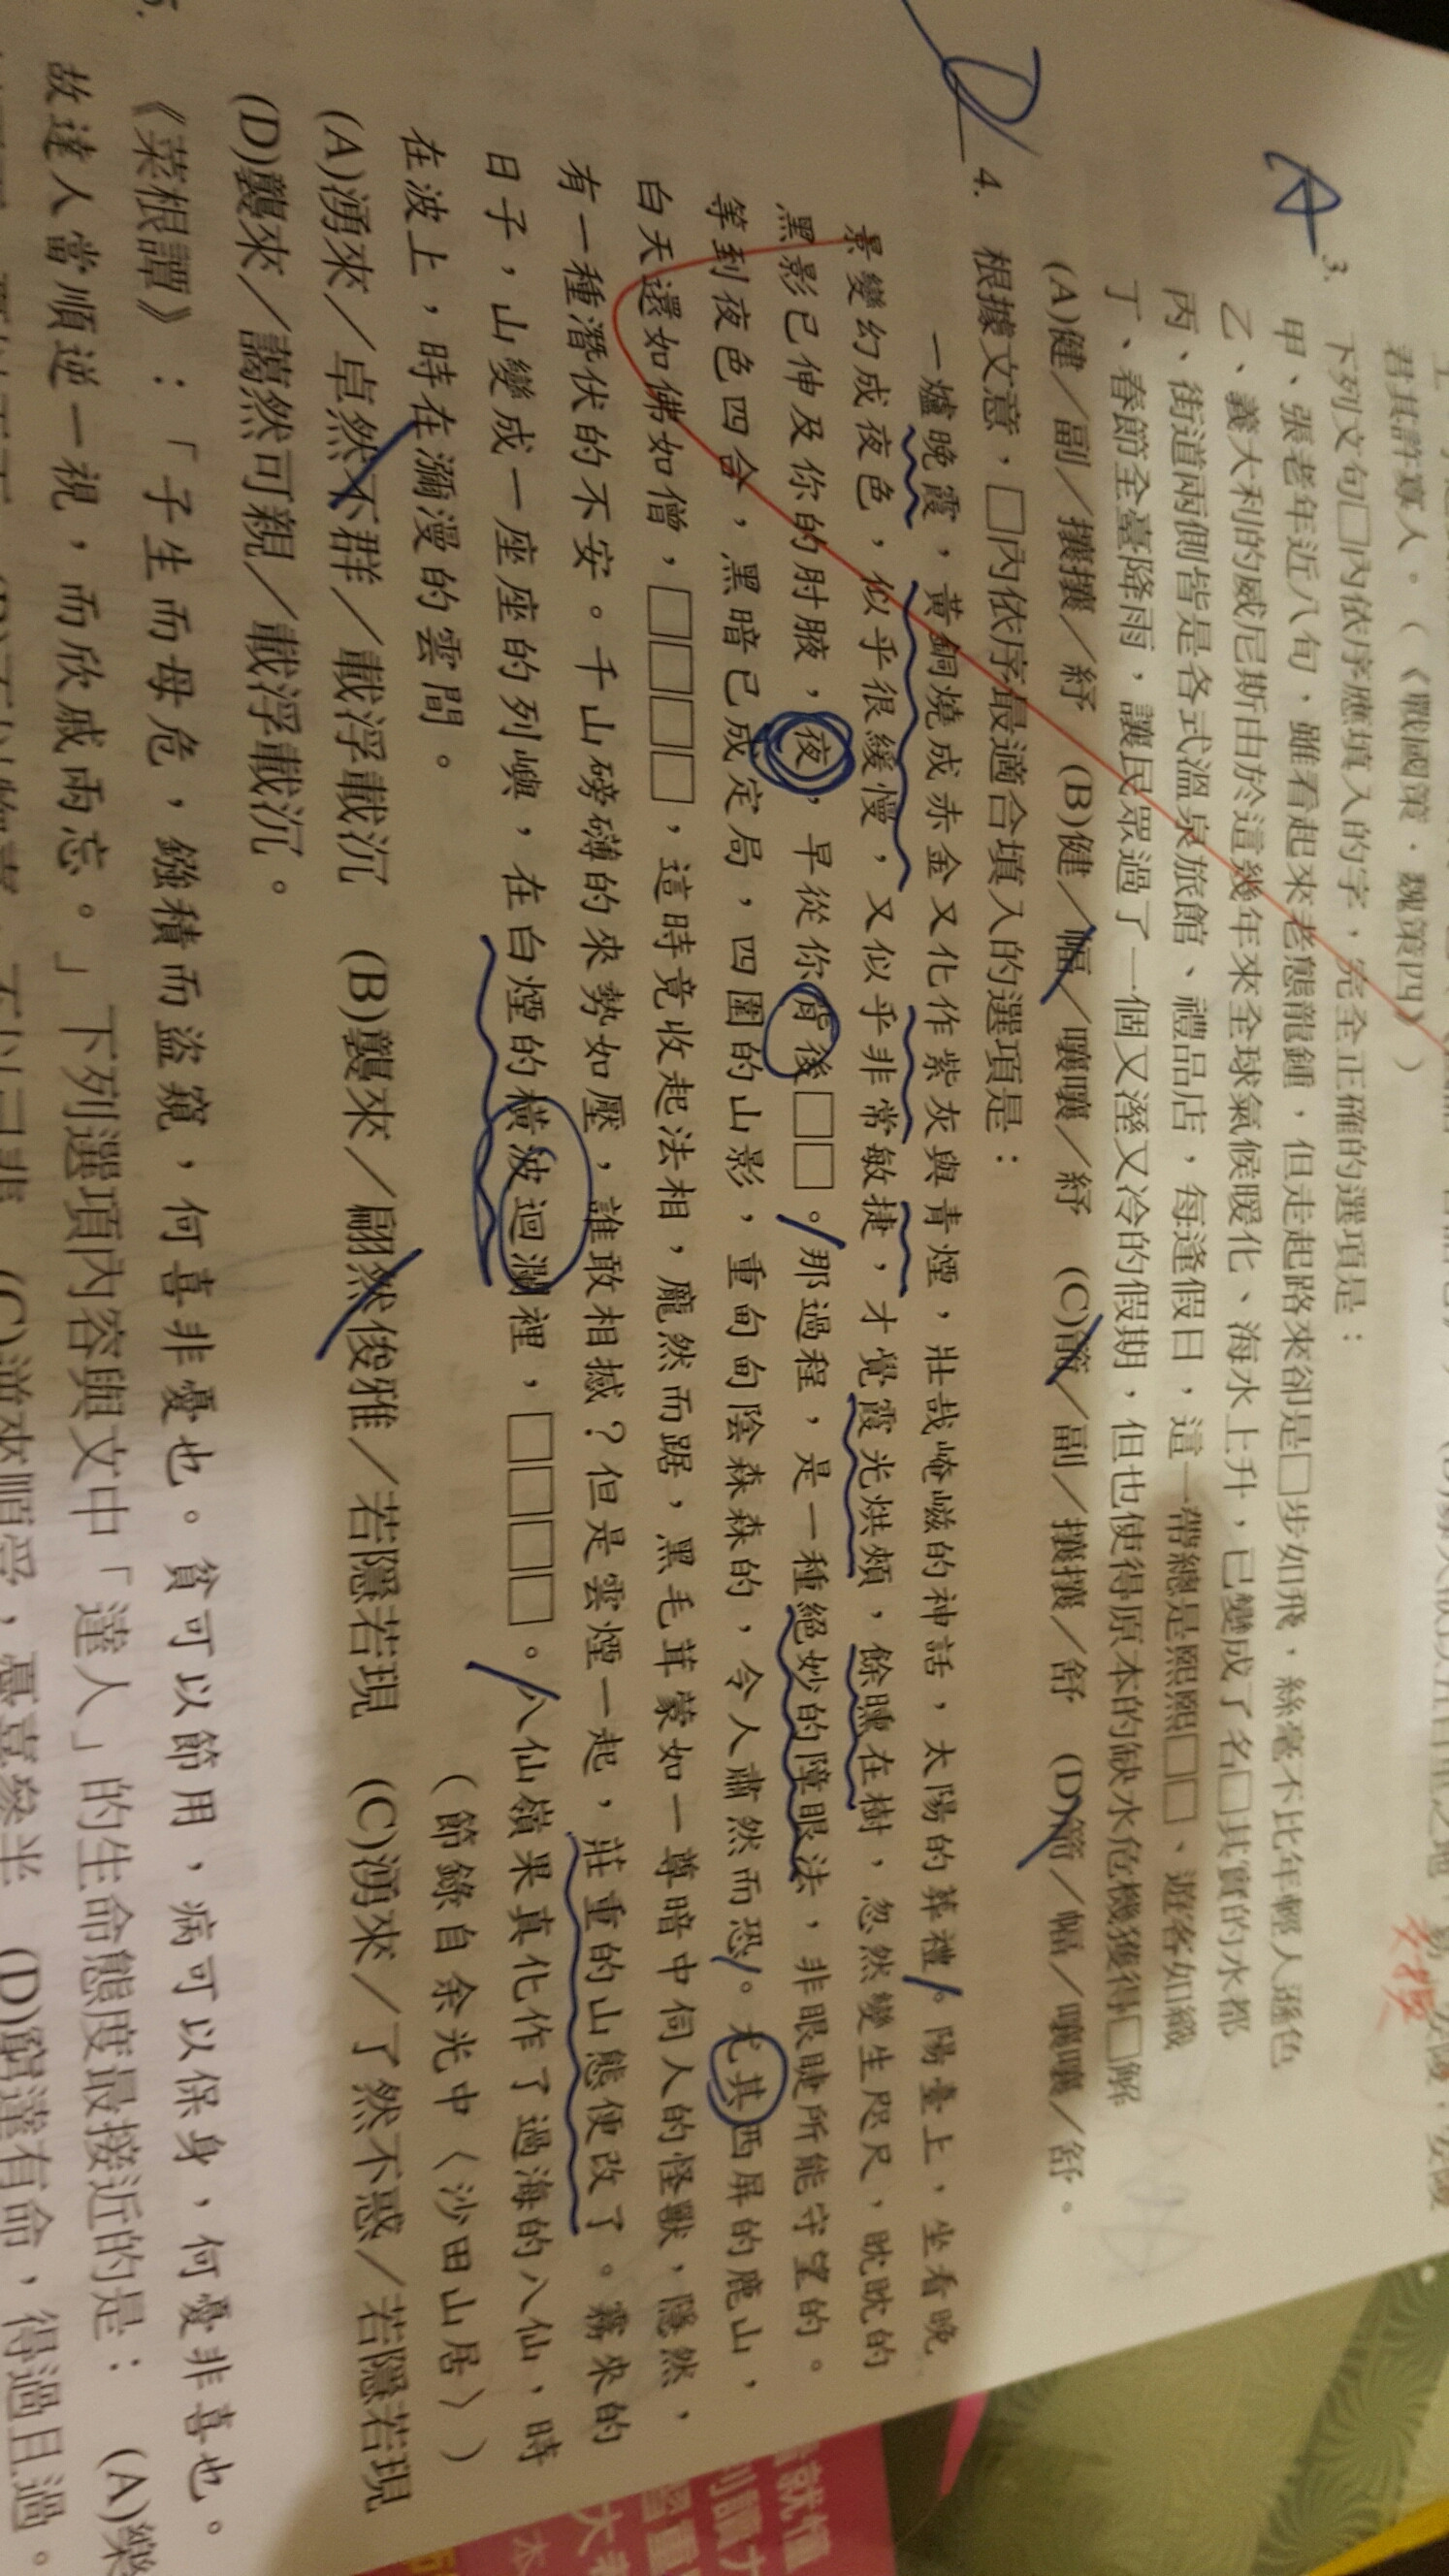 君其許寡人。（《戰國策．魏策四》）
A 3. 下列文句□內依序應填入的字，完全正確的選項是：
甲、張老年近八旬，雖看起來老態龍鍾，但走起路來卻是□步如飛，絲毫不比年輕人遜色
乙、義大利的威尼斯由於這幾年來全球氣候暖化、海水上升，已變成了名□其實的水都
丙、街道兩側皆是各式溫泉旅館、禮品店，每逢假日，這一帶總是熙熙□□、遊客如織
丁、春節全臺降雨，讓民眾過了一個又溼又冷的假期，但也使得原本的缺水危機獲得□解
(A)健／副／攘攘／紓　(B)健／幅／嚷嚷／紓　(C)箭／副／攘攘／舒　(D)箭／幅／嚷嚷／舒。
D 4. 根據文意，□內依序最適合填入的選項是：
一爐晚霞，黃銅燒成赤金又化作紫灰與青煙，壯哉崦嵫的神話，太陽的葬禮。陽臺上，坐看晚
景變幻成夜色，似乎很緩慢，又似乎非常敏捷，才覺霞光烘頰，餘曛在樹，忽然變生咫尺，眈眈的
黑影已伸及你的肘腋，夜，早從你背後□□。那過程，是一種絕妙的障眼法，非眼睫所能守望的。
等到夜色四合，黑暗已成定局，四圍的山影，重甸甸陰森森的，令人肅然而恐。尤其西屏的鹿山，
白天還如佛如僧，□□□□，這時竟收起法相，龐然而踞，黑毛茸蒙如一尊暗中伺人的怪獸，隱然，
有一種潛伏的不安。千山磅礡的來勢如壓，誰敢相撼？但是雲煙一起，莊重的山態便改了。霧來的
日子，山變成一座座的列嶼，在白煙的橫波迴瀾裡，□□□□。八仙嶺果真化作了過海的八仙，時
在波上，時在瀰漫的雲間。　（節錄自余光中〈沙田山居〉）
(A)湧來／卓然不群／載浮載沉　(B)襲來／翩然俊雅／若隱若現　(C)湧來／了然不惑／若隱若現
(D)襲來／藹然可親／載浮載沉。
《菜根譚》：「子生而母危，鏹積而盜窺，何喜非憂也。貧可以節用，病可以保身，何憂非喜也。
故達人當順逆一視，而欣戚兩忘。」下列選項內容與文中「達人」的生命態度最接近的是：　(A)樂
(C)逆來順受，憂喜參半　(D)窮達有命，得過且過。